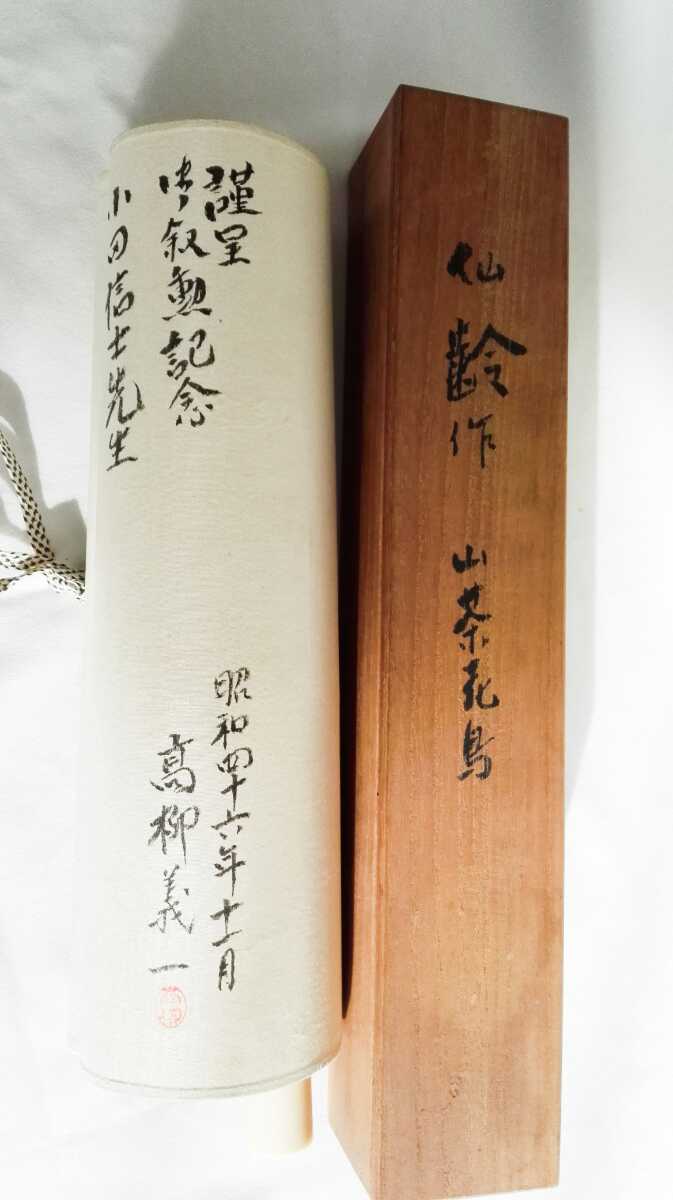 謹呈
御叙勲記念
小田信士先生
昭和四十六年十一月
高柳義一
仙齢作 山茶花鳥